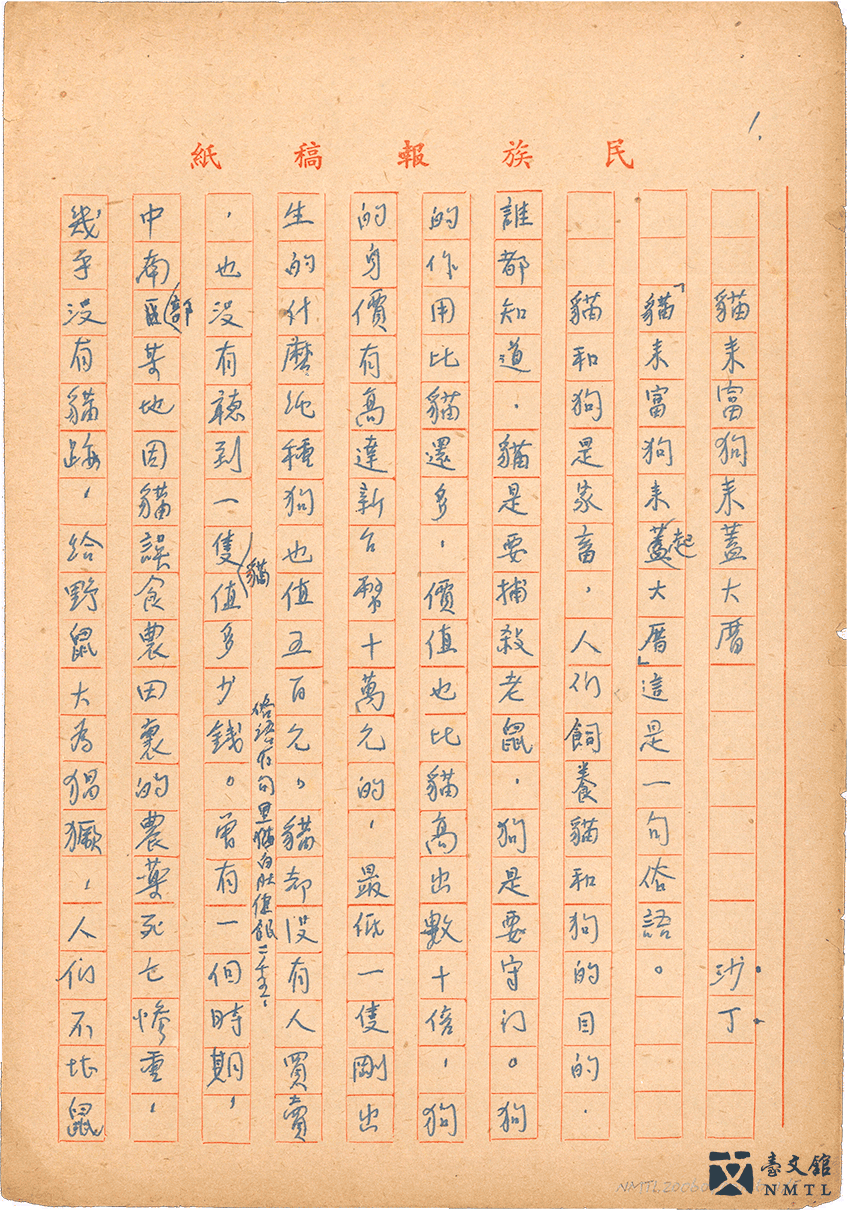 1.
民族報稿紙
貓来富狗来蓋大厝 沙丁
「貓来富狗来蓋起大厝」這是一句俗語。
貓和狗是家畜，人们飼養貓和狗的目的．
誰都知道．貓是要捕殺老鼠．狗是要守门。狗
的作用比貓還多，價值也比貓高出數十倍，狗
的身價有高達新台幣十萬元的，最低一隻剛出
生的什麼純種狗也值五百元，貓却没有人買賣
俗語有句黑貓白肚值銀二千五，
，也没有聽到一隻貓值多少錢。曾有一個時期，
中南部某地因貓誤食農田裏的農藥死亡慘重，
幾乎没有貓跡，给野鼠大為猖獗，人们不堪鼠
NMTL2008
臺文館
NMTL